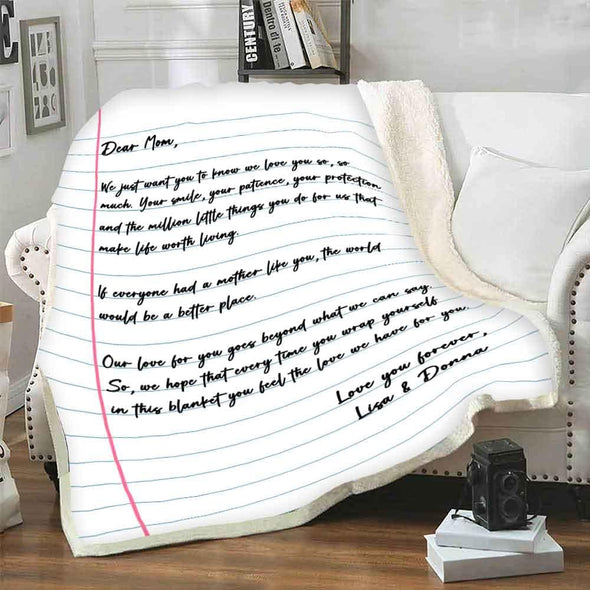 E
CENTURY
Dentro di te
Dear Mom,
We just want you to know we love you so, so
much. Your smile, your patience, your protection
and the million little things you do for us that
make life worth living.
If everyone had a mother like you, the world
would be a better place.
Our love for you goes beyond what we can say.
So, we hope that every time you wrap yourself
in this blanket you feel the love we have for you.
Love you forever,
Lisa & Donna